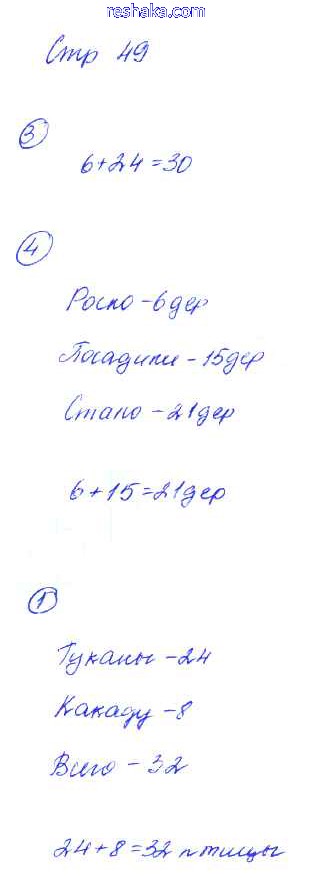 reshaka.com
Стр 49
3
6+24=30
4
Росло - 6 дер
Посадили - 15 дер
Стало - 21 дер
6+15=21 дер
1
Туканы - 24
Какаду - 8
Всего - 32
24+8=32 птицы